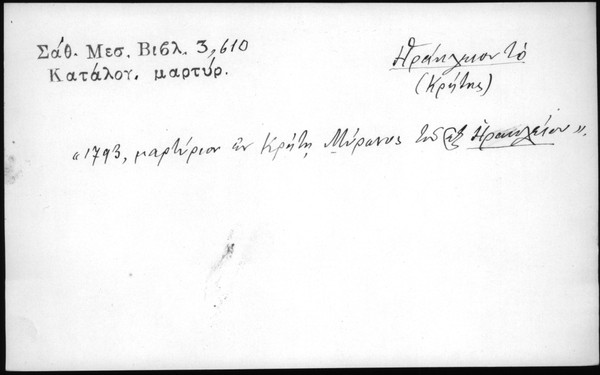 Σάθ. Μεσ. Βιβλ. 3, 610
Κατάλογ. μαρτύρ.
Ἡράκλειον τό
(Κρήτης)
«1793, μαρτύριον ἐν Κρήτῃ Μύρωνος τοῦ ἐξ Ἡρακλείου».